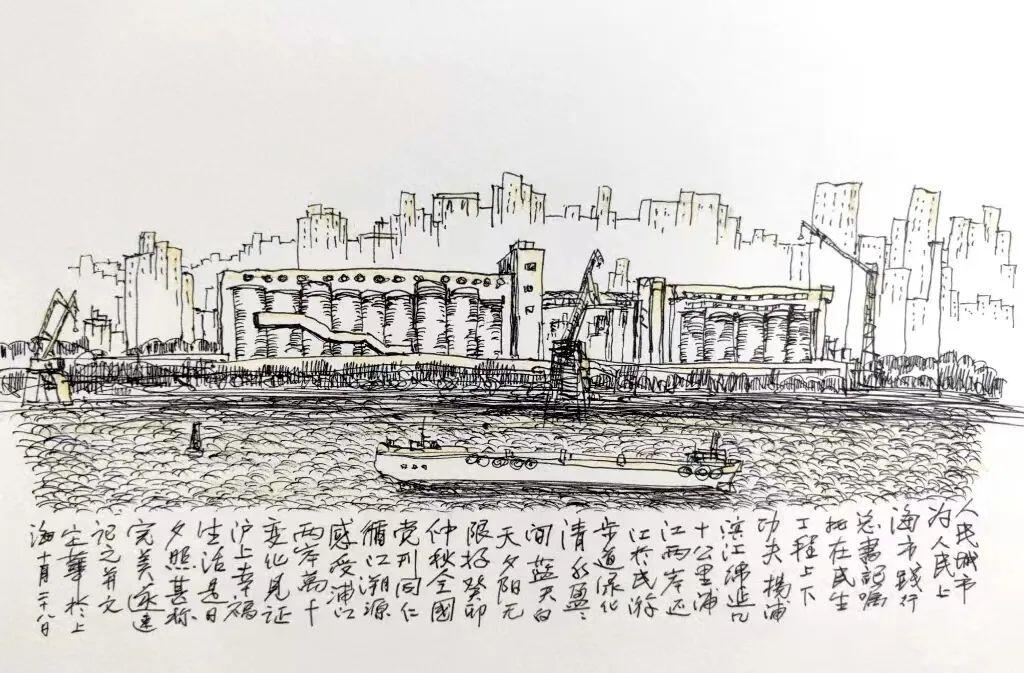 人民城市
为人民上
海市践行
总书记嘱
托在民生
工程上下
功夫杨浦
滨江绵延几
十公里浦
江两岸还
江於民游
步道绿化
清水盈盈
间蓝天白
天夕阳无
限好癸卯
仲秋全國
党刊同仁
循江溯源
感受浦江
两岸萬千
变化见证
沪上幸福
生活是日
夕照甚称
完美速
记之并文
華於上
海十月二十八日